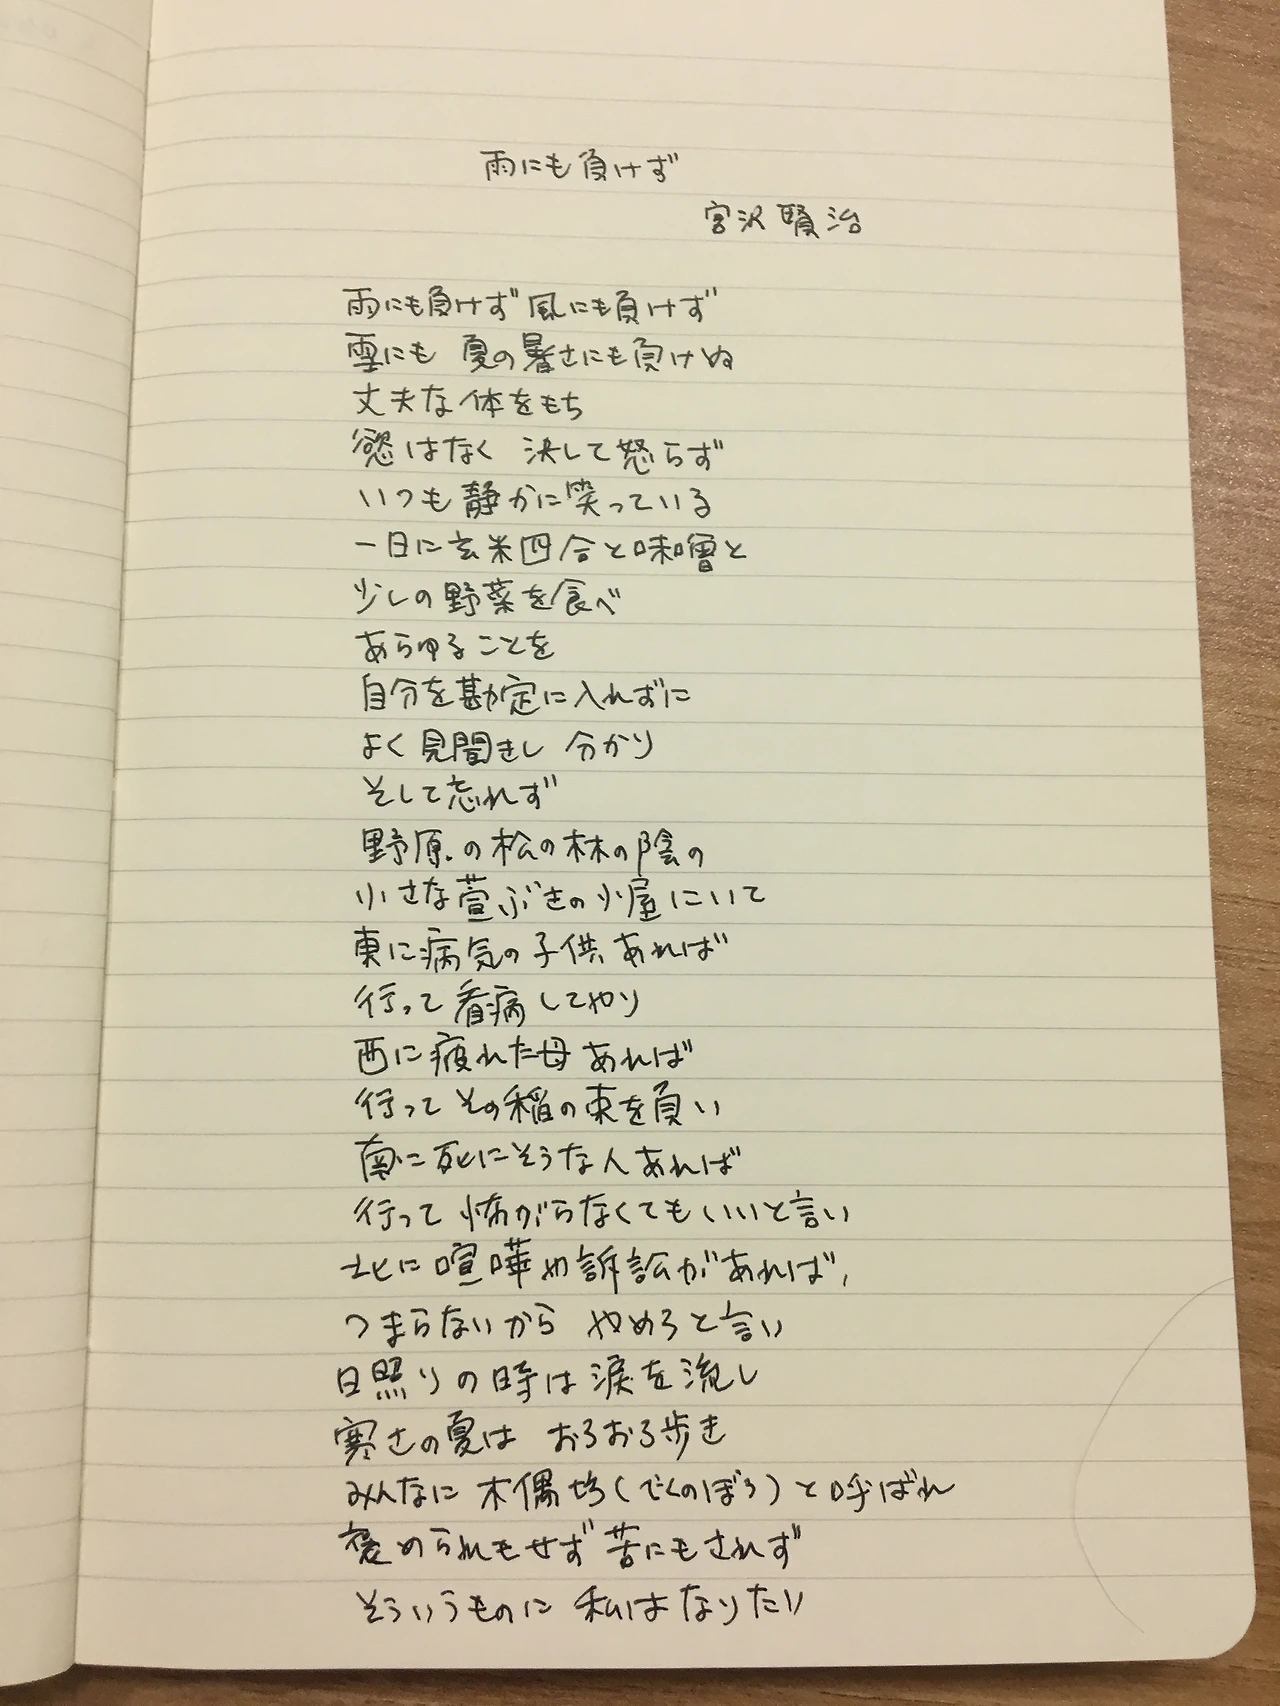 雨にも負けず
宮沢賢治
雨にも負けず 風にも負けず
雪にも 夏の暑さにも負けぬ
丈夫な体をもち
慾はなく 決して怒らず
いつも静かに笑っている
一日に玄米四合と味噌と
少しの野菜を食べ
あらゆることを
自分を勘定に入れずに
よく見聞きし 分かり
そして忘れず
野原の松の林の陰の
小さな萱ぶきの小屋にいて
東に病気の子供あれば
行って看病してやり
西に疲れた母あれば
行ってその稲の束を負い
南に死にそうな人あれば
行って怖がらなくてもいいと言い
北に喧嘩や訴訟があれば、
つまらないから やめろと言い
日照りの時は涙を流し
寒さの夏は おろおろ歩き
みんなに 木偶坊(でくのぼう)と呼ばれ
褒められもせず 苦にもされず
そういうものに 私はなりたい